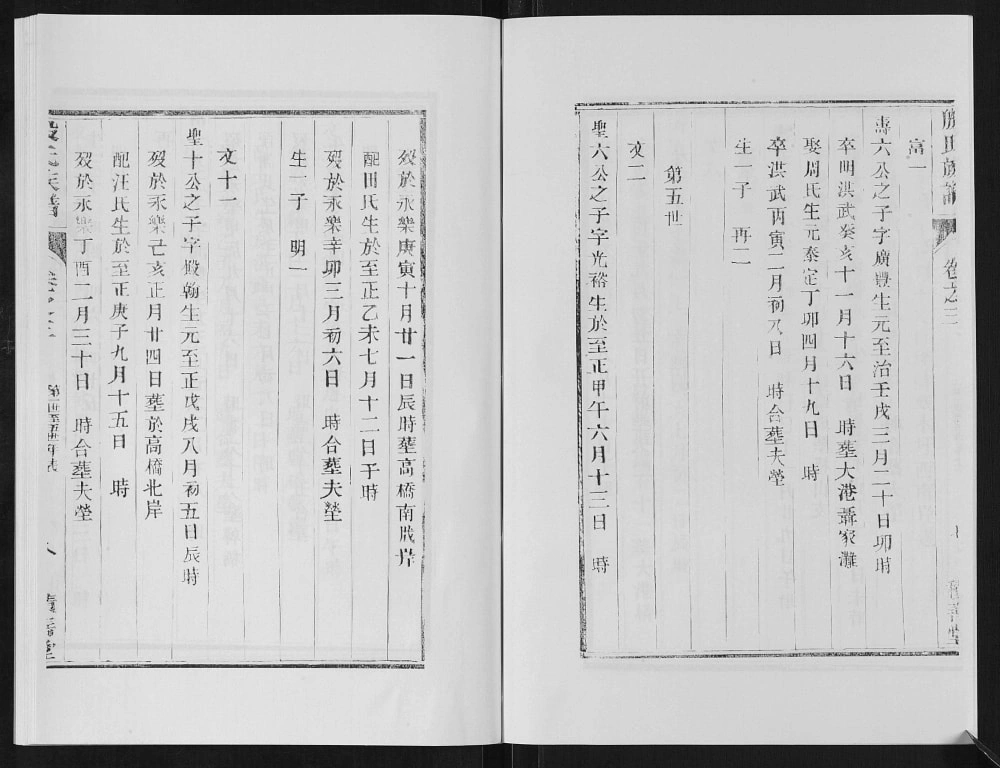 氏族譜
卷之三
富一
壽六公之子字廣豐生元至治壬戌三月二十日卯時
卒明洪武癸亥十一月十六日 時葬大港聶家灘
娶周氏生元泰定丁卯四月十九日 時
卒洪武丙寅二月初八日 時合葬夫塋
生一子 再二
第五世
文二
聖六公之子字光裕生於至正甲午六月十三日 時
歿於永樂庚寅十月廿一日辰時葬高橋南戚岸
配田氏生於至正乙未七月十二日子時
歿於永樂辛卯三月初六日 時合葬夫塋
生一子 明一
文十一
聖十公之子字 翰生元至正戊戌八月初五日辰時
歿於永樂己亥正月廿四日葬於高橋北岸
配汪氏生於至正庚子九月十五日 時
歿於永樂丁酉二月三十日 時合葬夫塋
氏族譜
第一世至五世年表
八